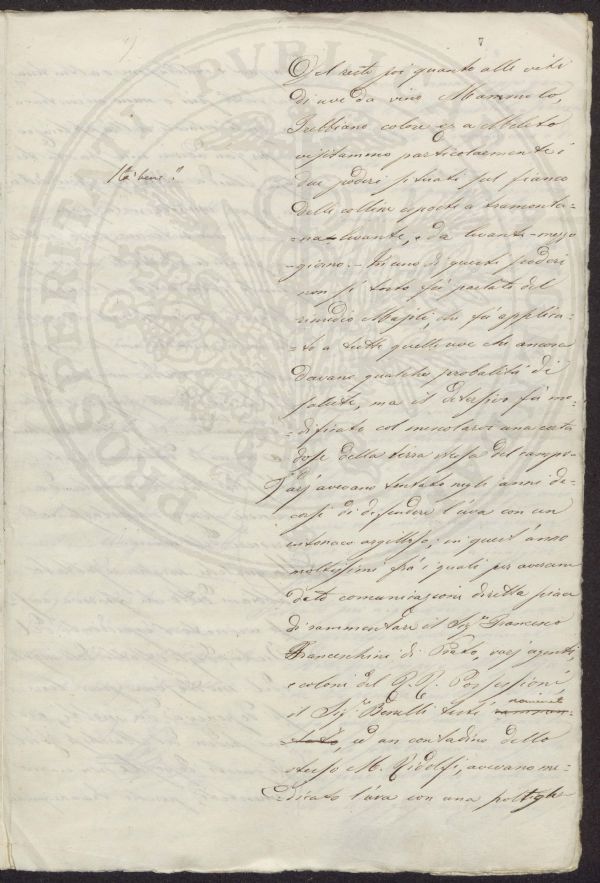 7
Del resto poi quanto alle viti
di uve da vino Mammolo,
Trebbiano colore &c a Meleto
visitammo particolarmente i
Sta bene?
due poderi situati sul fianco
delle colline esposte a tramonta-
-na levante, e da levante-mezzo
-giorno. - In uno di questi poderi
non si tosto fu parlato del
rimedio Majoli, che fu applica-
-to a tutte quelle uve che ancora
davano qualche probabilità di
salute, ma il detersivo fu mo-
-dificato col mescolarvi una certa
dose della terra stessa del campo.
avevano tentato negli anni de-
corsi di difendere l'uva con un
intonaco argilloso; in quest'anno
moltissimi fra i quali per avercene
dato comunicazione diretta piace
di rammentare il Sig.r Francesco
Franceschini di Prato, varj agenti,
e coloni del R. R. Possessioni,
il Sig.r testè nominato
, ed un contadino dello
stesso M. Ridolfi, avevano me-
dicato l'uva con una poltiglia
PROSPERITATI PVBLICAE